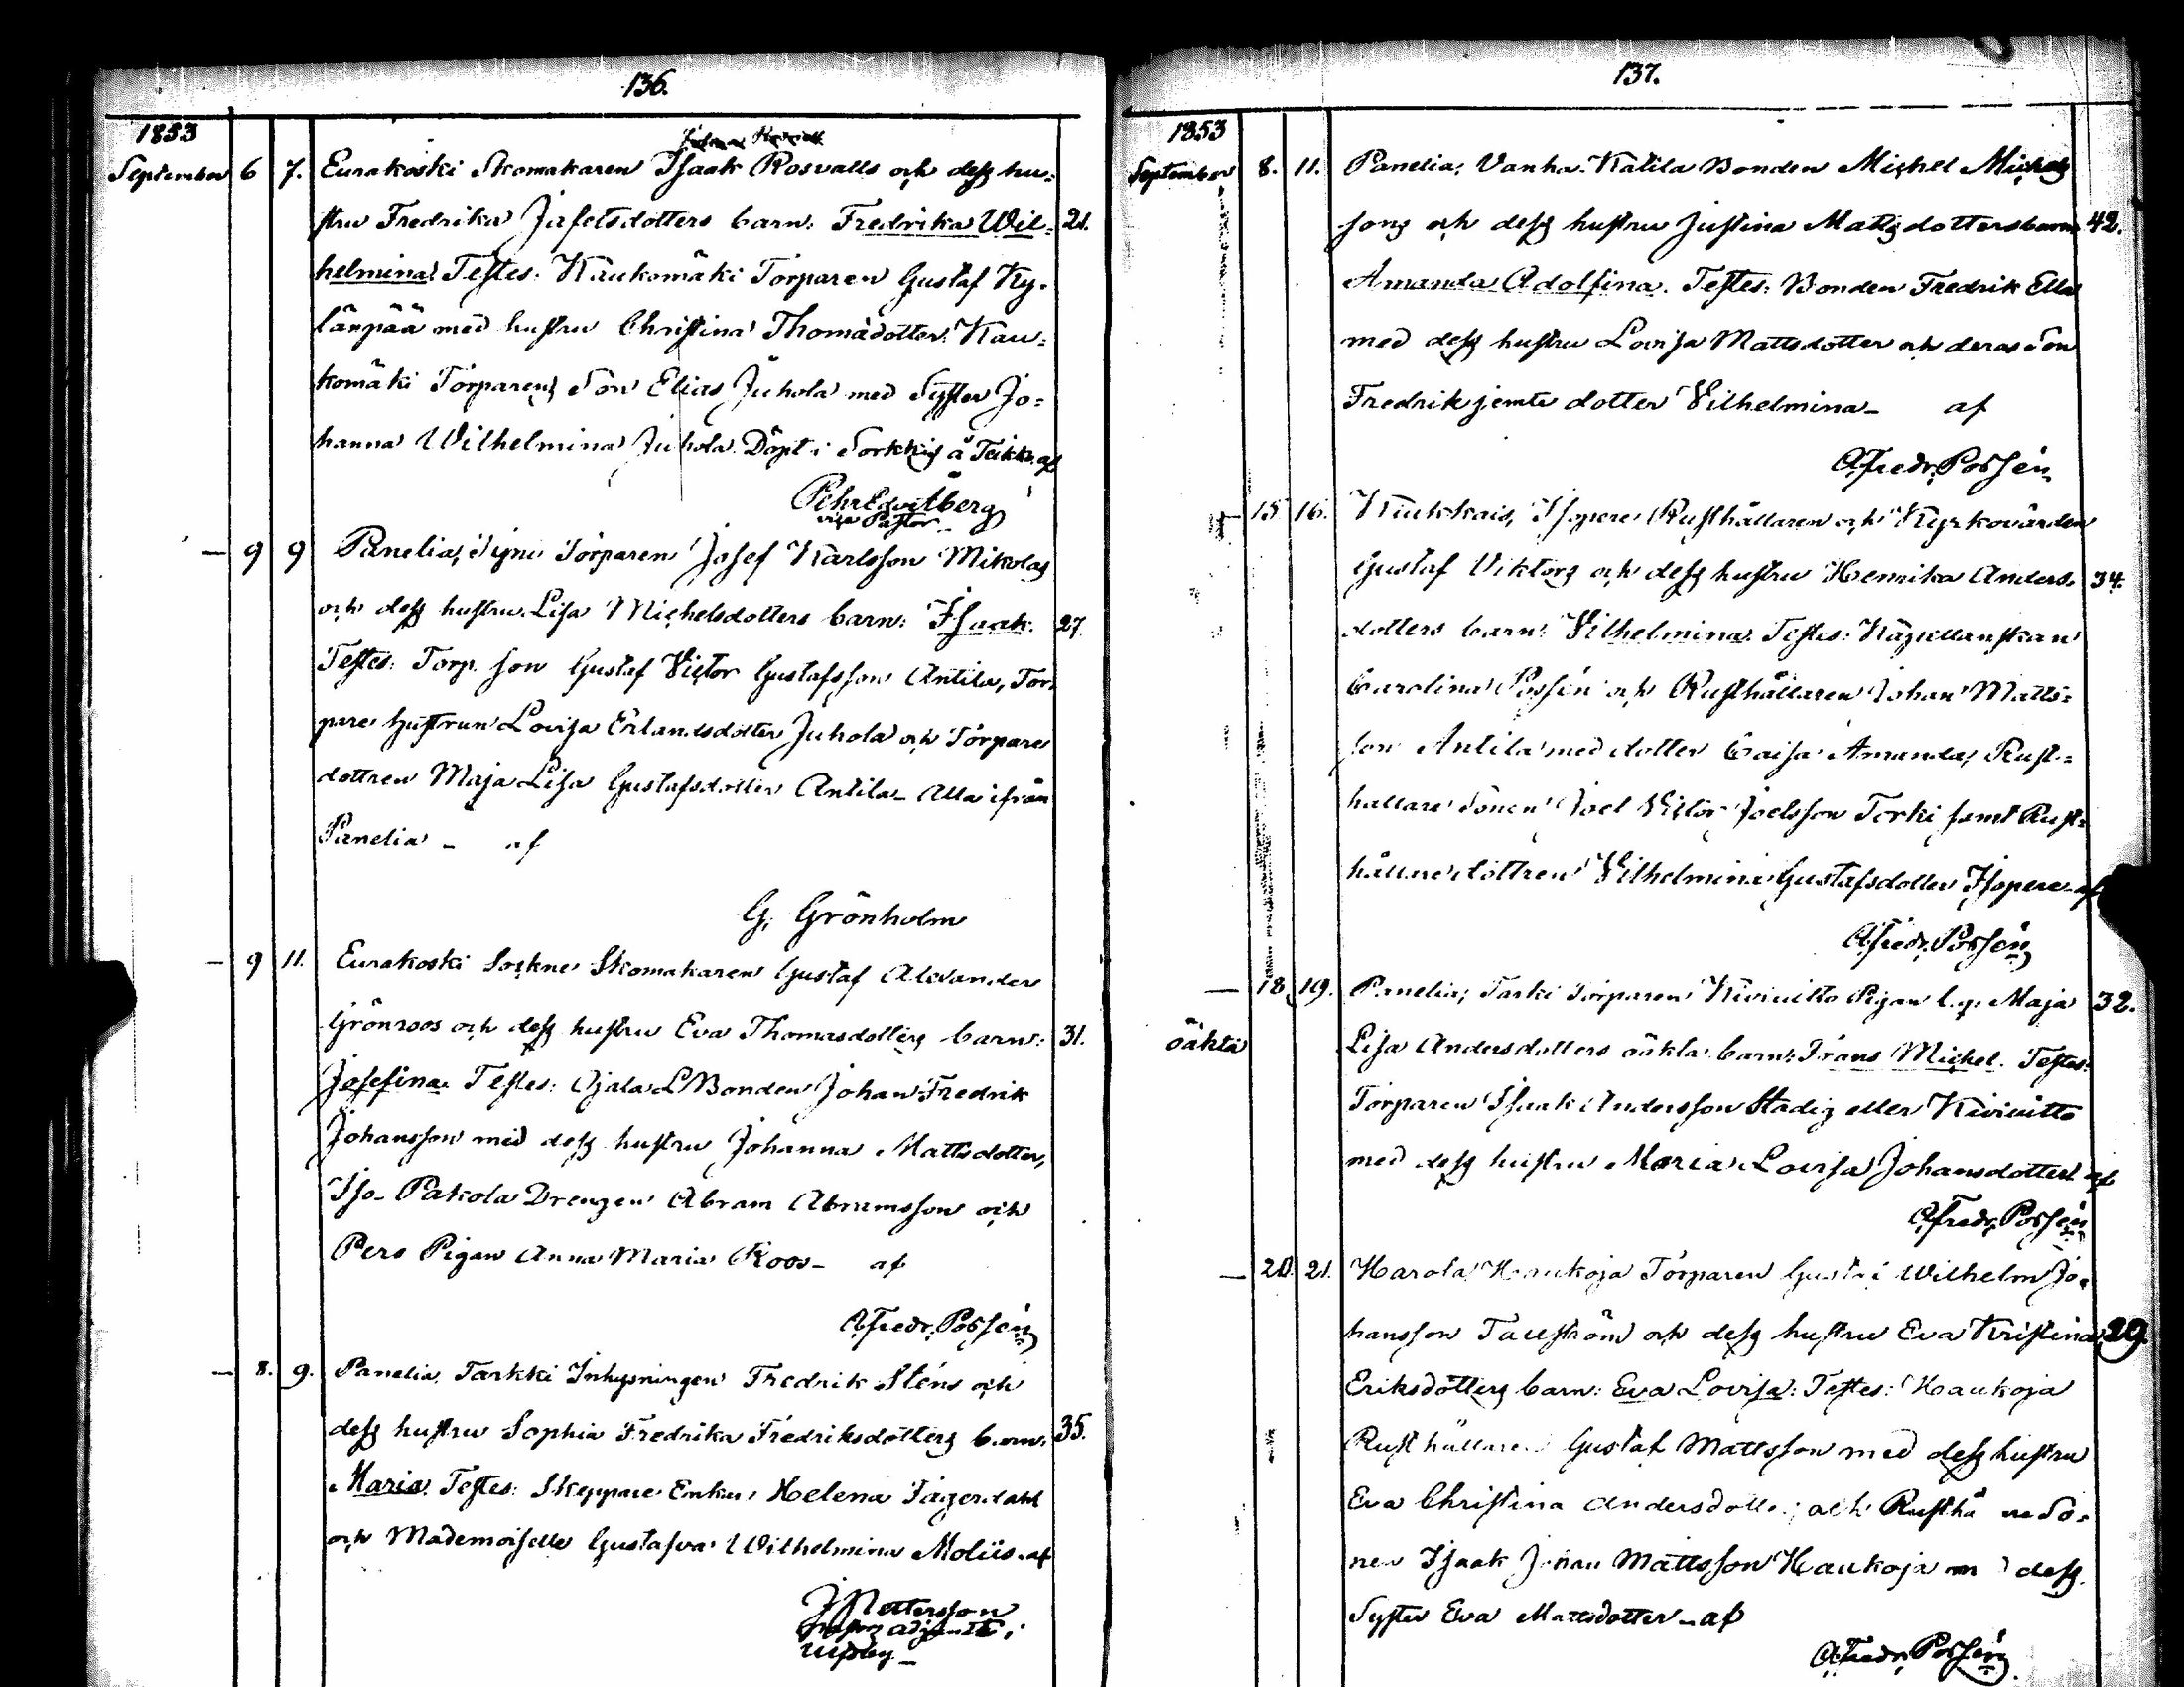 136.
1853
September 6 7. Eurakoski Skomakaren Isaak Rosvalls och dess hu=
stru Fredrika Jafetsdotters barn: Fredrika Wil= 21.
helmina. Testes: Kaukomäki Torparen Gustaf Ky=
länpää med hustru Christina Thomädotter. Kau=
komäki Torparens Son Elias Juhola med Syster Jo=
hanna Wilhelmina Juhola. Döpt i Sorkkis å Teikk. af
Pehr Edv Åberg
vice Pastor
— 9 9 Panelia, Torparen Josef Karlsson Mikolas
och dess hustru Lisa Michelsdotters barn: Isaak. 27
Testes: Torp. son Gustaf Victor Gustafsson Antila, Tor=
pare hustrun Lovisa Erlandsdotter Juhola och Torpare
dottren Maja Lisa Gustafsdotter Antila – alla ifrån
Panelia – af
G. Grönholm
— 9 11. Eurakoski Sockne Skomakaren Gustaf Alexander
Grönroos och dess hustru Eva Thomasdotters barn: 31.
Josefina. Testes: Ojala L Bonden Johan Fredrik
Johansson med dess hustru Johanna Mattsdotter,
Iso-Pakola Drengen Abram Abramsson och
Pero Pigan Anna Maria Roos – af
A Fredr. Possén
— 8. 9. Panelia Tarkki Inhysningen Fredrik Sténs och
dess hustru Sophia Fredrika Fredriksdotters barn: 35.
Maria. Testes: Skeppare Enkan Helena Jägerdahl
och Mademoiselle Gustafva Wilhelmina Moliis – af
Pettersson
adjunkt i
137.
1853
September 8. 11. Panelia, Vanha-Katila Bonden Michel Michels
sons och dess hustru Justina Mattsdotters barn 42.
Amanda Adolfina. Testes: Bonden Fredrik Ella
med dess hustru Lovisa Mattsdotter och deras Son
Fredrik jemte dotter Vilhelmina – af
A Fredr. Possén
— 15 16. Kiukkais, Isopere Rusthållaren och Kyrkovärden
Gustaf Viktors och dess hustru Henrika Anders= 34.
dotters barn: Vilhelmina. Testes: Kapellanskan
Carolina Possén och Rusthållaren Johan Matts=
son Antila med dotter Caisa Amanda, Rust=
hållare Sonen Joel Victor Joelsson Torki samt Rust=
hållare dottren Vilhelmina Gustafsdotter Isopere – af
A Fredr. Possén
— 18 19. Panelia, Tarki Torparen Kiviuitto Pigan Maja 32.
oäkta Lisa Andersdotters oäkta barn: Frans Michel. Testes:
Torparen Isaak Andersson Stadig eller Kiviuitto
med dess hustru Maria Lovisa Johansdotter af
A Fredr. Possén
— 20. 21. Harola Haukoja Torparen Gustaf Wilhelm Jo=
hansson Tallström och dess hustru Eva Kristina 29.
Eriksdotters barn: Eva Lovisa: Testes: Haukoja
Rusthållaren Gustaf Mattsson med dess hustru
Eva Christina Andersdotter; och Rusthållare So=
nen Isaak Johan Mattsson Haukoja med dess
Syster Eva Mattsdotter – af
A Fredr. Possén